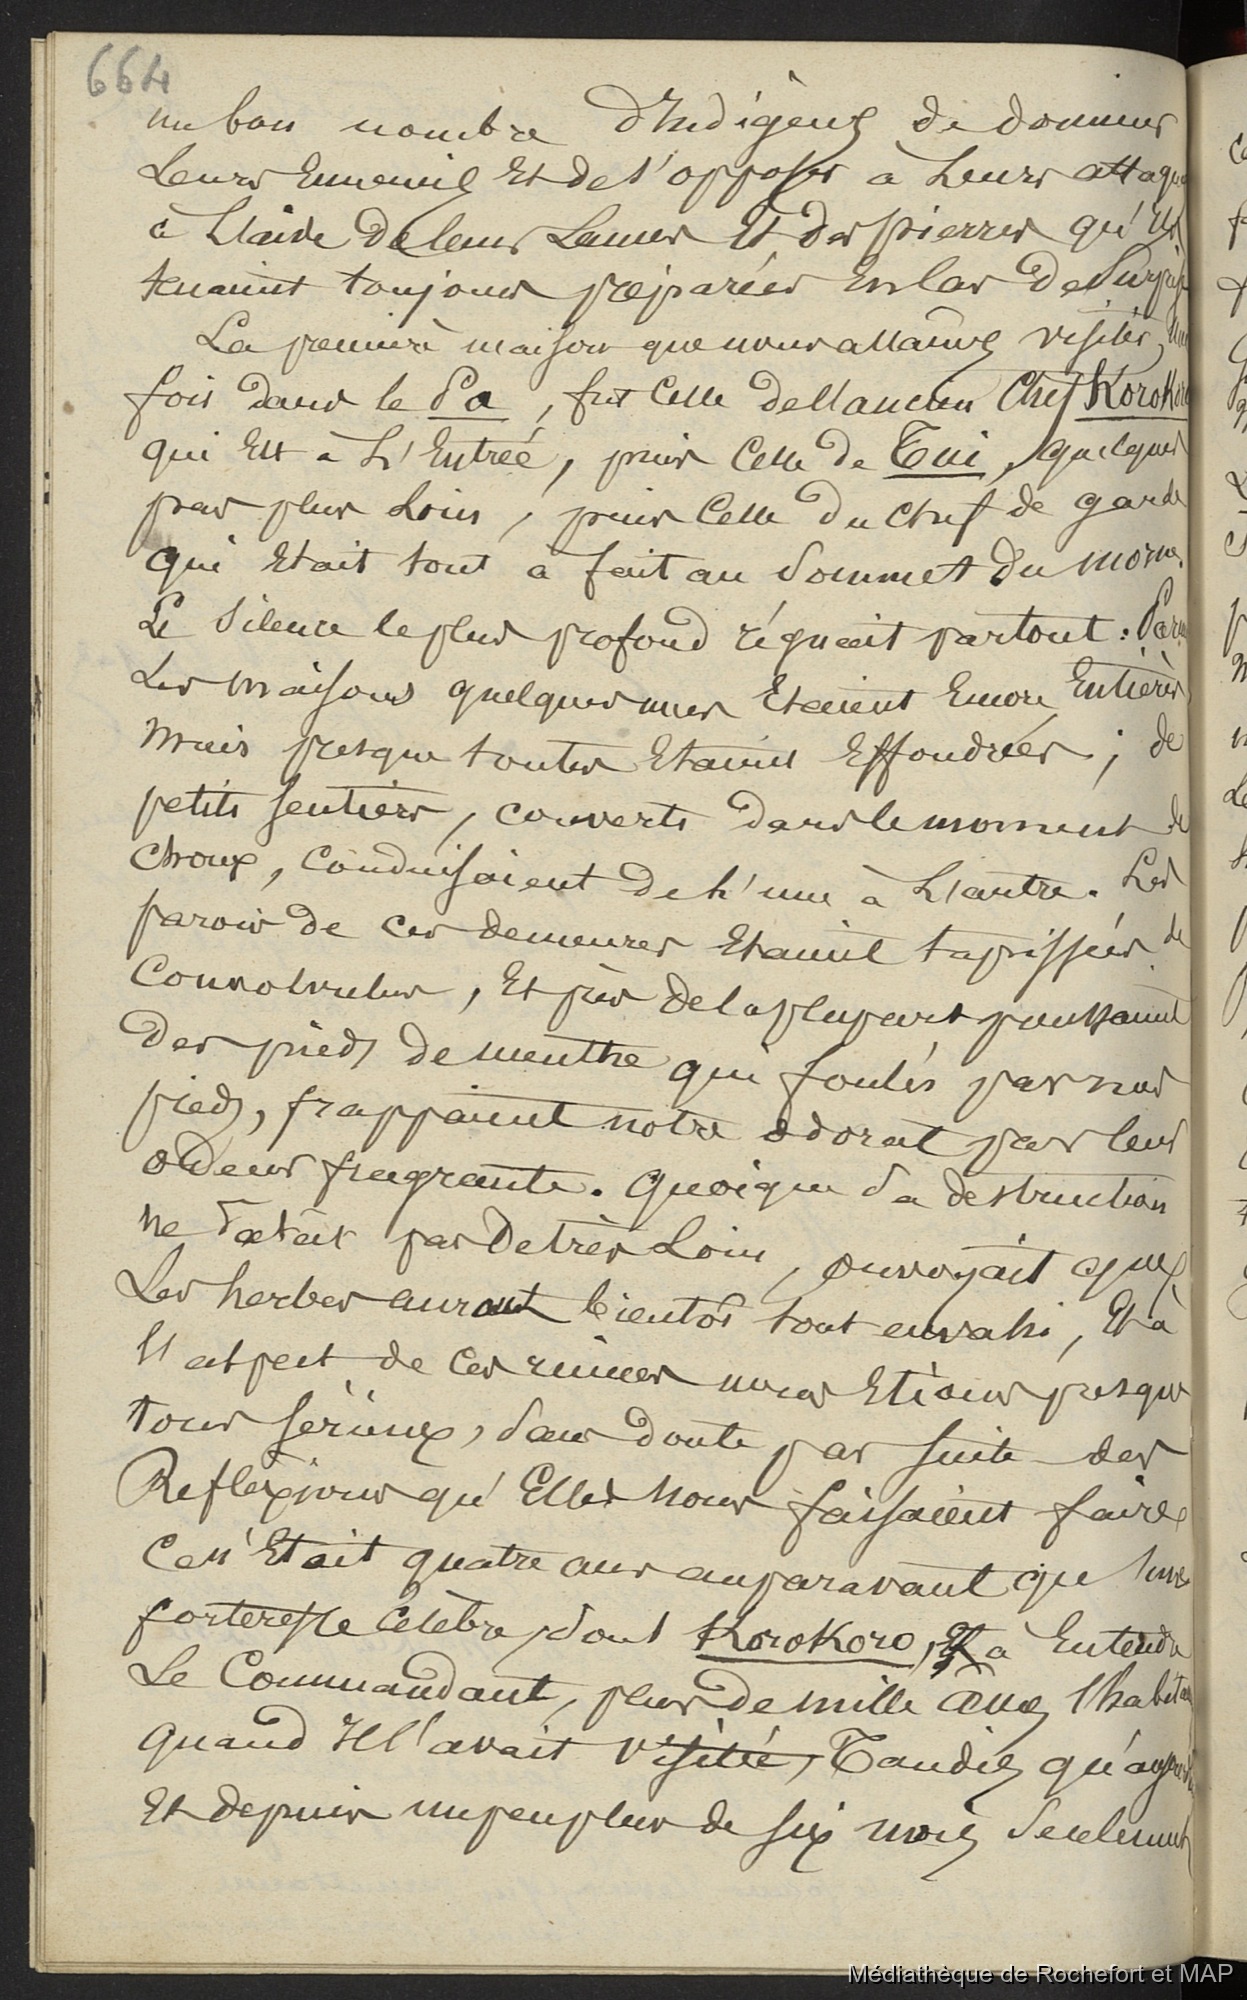 664
un bon nombre d'Indigènes de dominer
Leurs Ennemis Et de s'opposer à Leurs attaques
à L'aide de leurs Lances Et des pierres qu'ils
tenaient toujours préparées En Cas de Surprise
La premiere maison que nous allames visiter, une
fois dans le Pa, fut Celle de l'ancien Chef KoroKoro
qui Est à L'Entrée, puis Celle de Tui, quelques
pas plus Loin, puis Celle du Chef de garde
qui Etait tout à fait au Sommet du morne.
Le Silence le plus profond régnait partout : Parmi
Les maisons quelques unes Etaient Encore Entières
mais presque toutes Etaient Effondrées ; de
petits sentiers, couverts dans le moment de
choux, conduisaient de L'une à L'autre. Les
parois de ces demeures Etaient tapissées de
Convolvulus, Et près de la plupart poussaient
Des pieds de menthe qui foulés par nos
pieds, frappaient notre odorat par leur
odeur fragrante. Quoique Sa destruction
ne datât pas De très Loin, on voyait que
Les herbes auront bientôt tout envahi, Et à
L'aspect de ces ruines nous Etions presque
tous sérieux, Sans doute par suite des
Reflexions qu'Elles nous faisaient faire
Ce n'Etait quatre ans auparavant qu'une
forteresse Célèbre, dont KoroKoro, à Entendre
Le Commandant, plus de mille âmes l'habitaient
quand Il l'avait visitée, Tandis qu'aujourd'hui
Et depuis un peu plus de six mois Seulement
Médiathèque de Rochefort et MAP